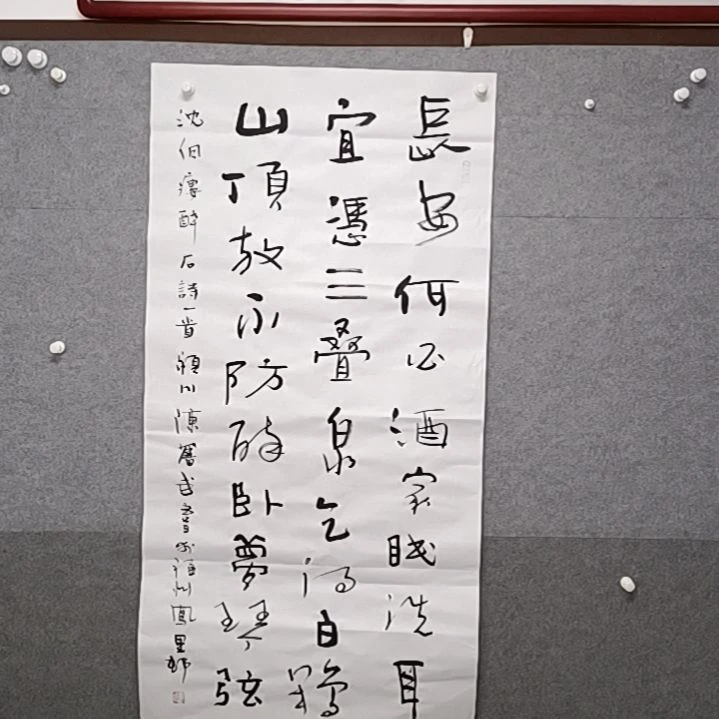 長安何必酒家眠洗耳
宜憑三疊泉乞得白鶴
山頂放不防醉臥夢琴弦
沈伯醉石詩一首潁川陳武書於福州鳳里